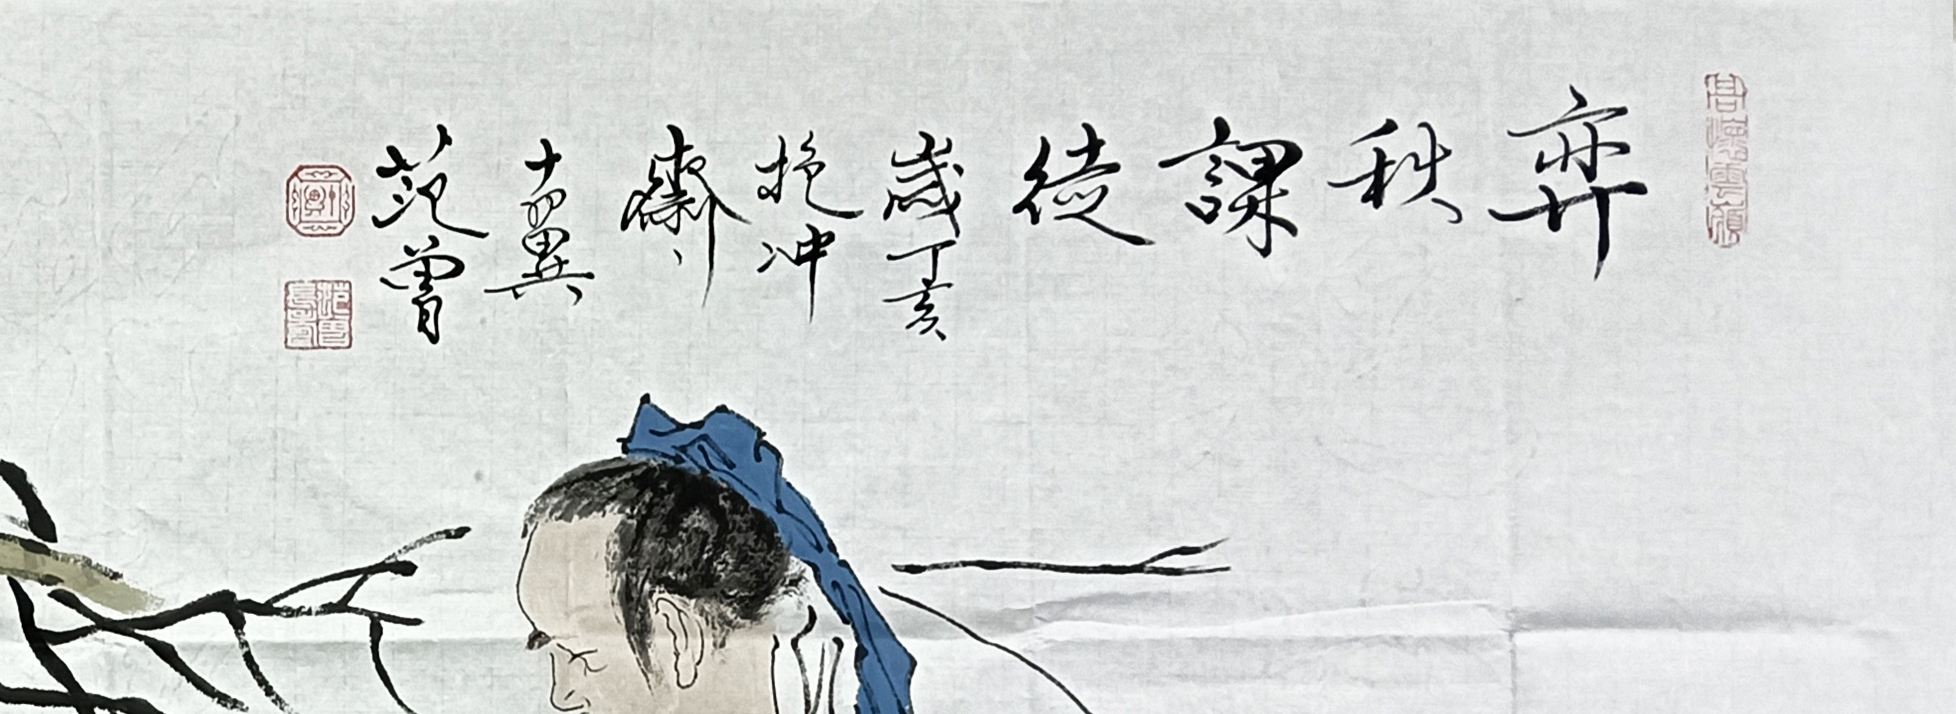 弈
秋
課
徒
歲丁亥
抱冲
齋
十翼
范曾